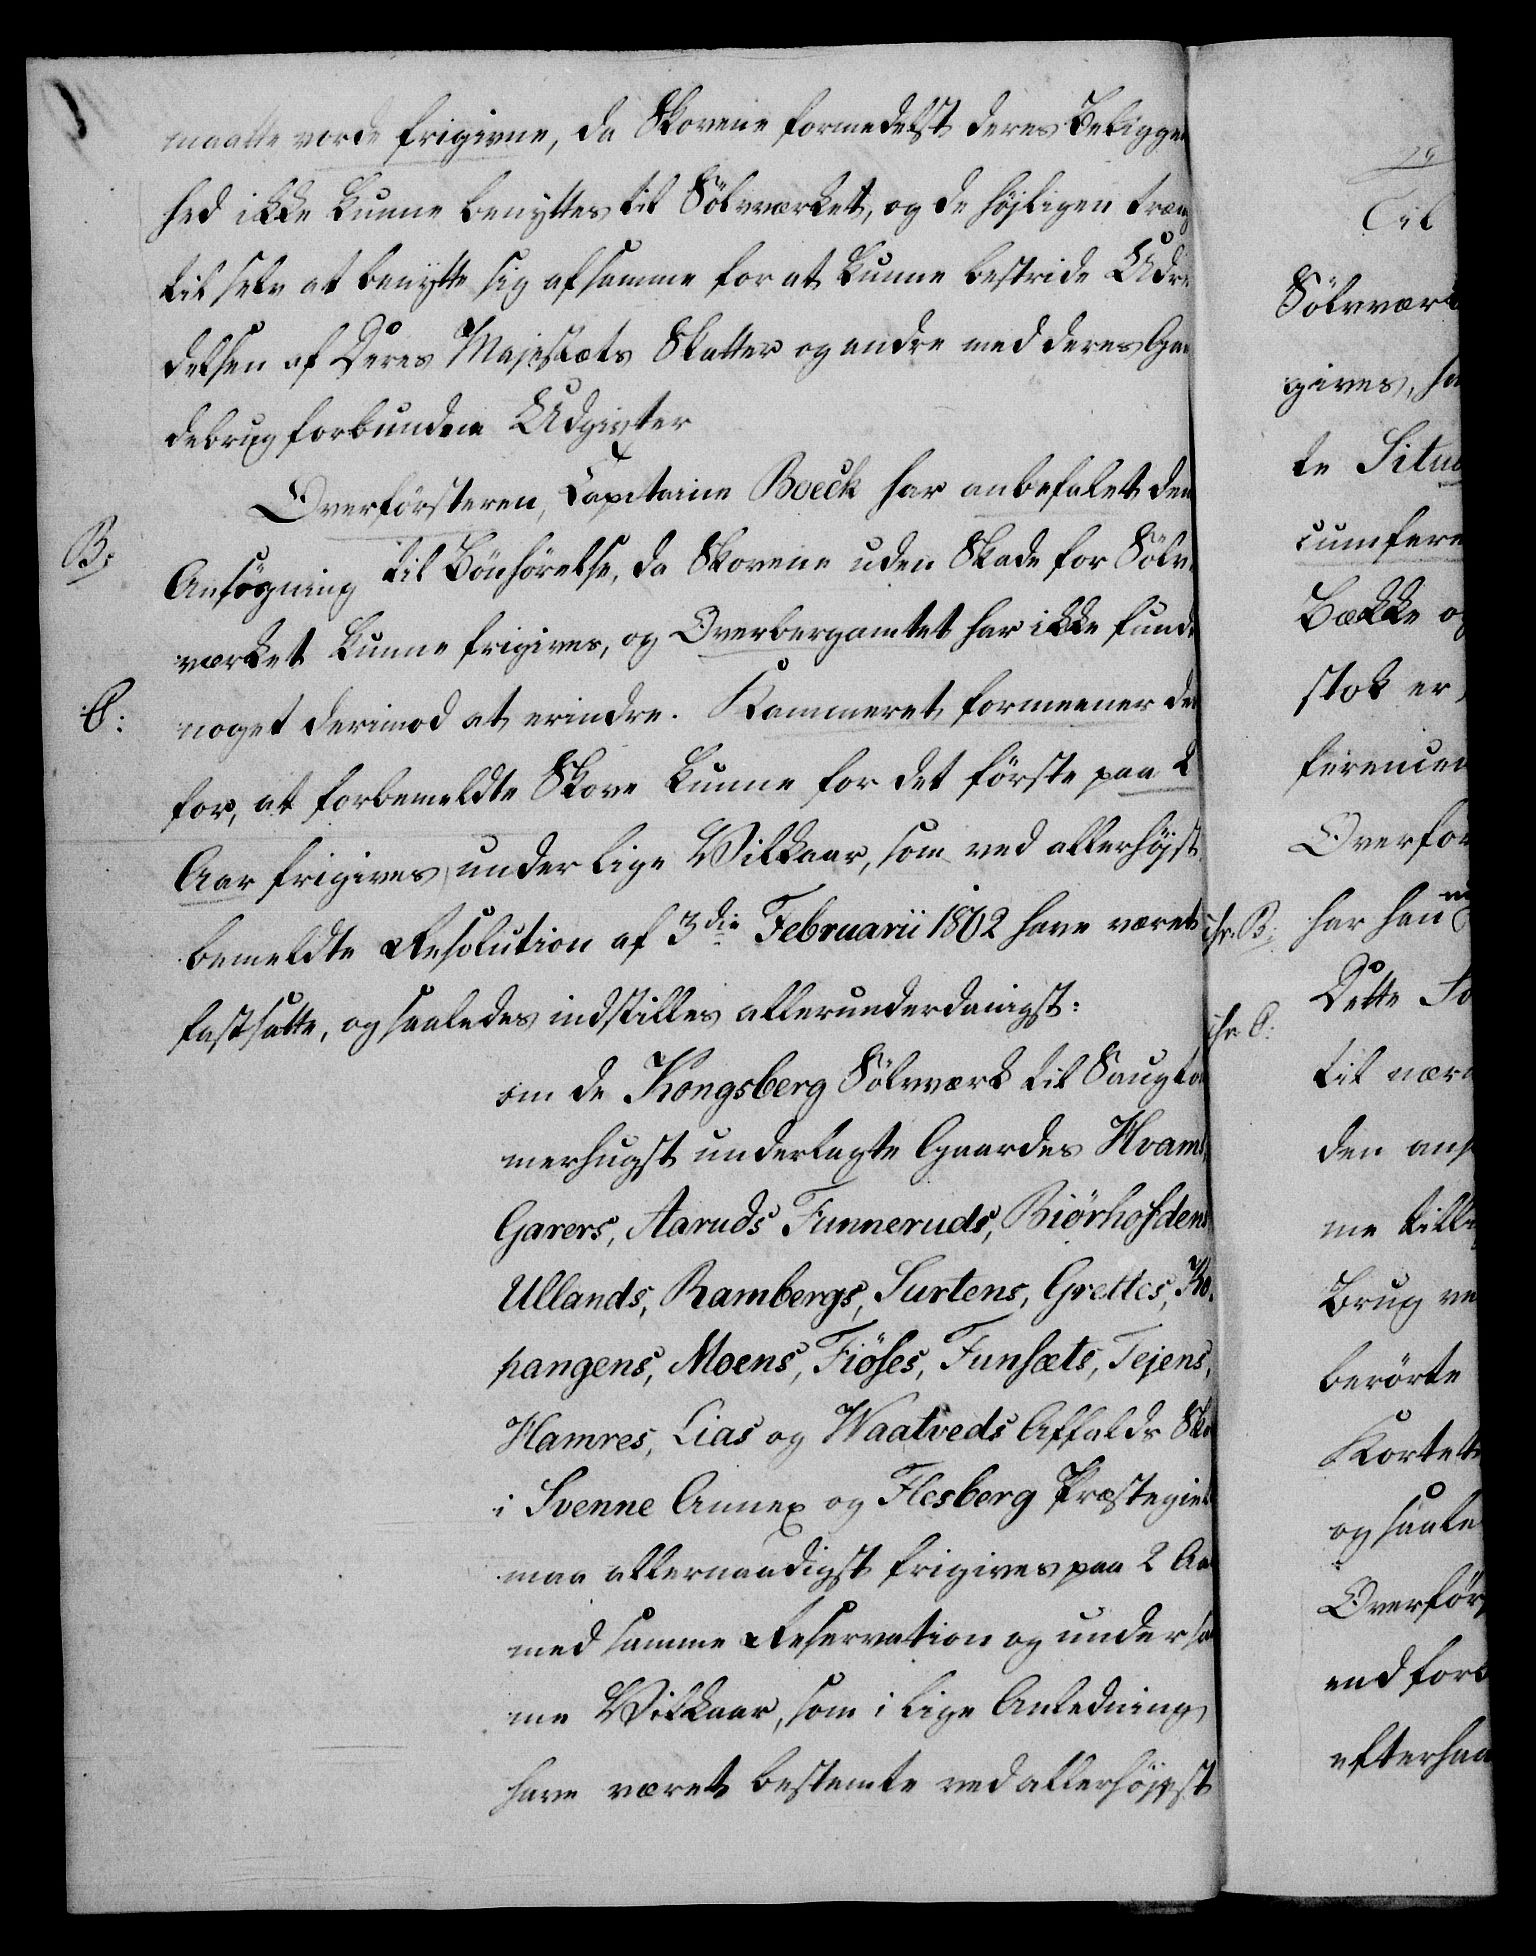 maatte vorde frigivne, da Skovene formedelst deres Beliggen
hed ikke kunne benyttes til Sölvværket, og de höjligen træng
til selv at benytte sig af samme for at kunne bestride Udre
delsen af Deres Majestæts Skatter og andre med deres Gaa
debrug forbundne Udgivter
Overförsteren, Capitaine Boeck har anbefalet den
B:
Ansögning til Bönhörelse, da Skovene uden Skade for Sölv
værket kunne frigives, og Overbergamtet har ikke funde
C:
noget derimod at erindre. Kammeret formeener der
for, at forbemeldte Skove kunne for det förste paa 2
Aar frigives under lige Vilkaar, som ved allerhöjst
bemeldte Resolution af 3die Februarii 1802 have været
fastsatte, og saaledes indstilles allerunderdanigst:
om de Kongsberg Sölvværk til Saugtöm
merhugst underlagte Gaardes Hvams,
Garers, Aaruds Funneruds, Biörhofdens
Ullands, Rambergs, Surtens, Grettes, Ko
pangens, Moens, Fiöses, Funsæts, Tejens,
Hamres, Lias og Waatveds Affalds Sko
i Svenne Annex og Flesberg Præstegield
maa allernaadigst frigives paa 2 Aa
med samme Reservation og under sa
me Vilkaar, som i lige Anledning
have været bestemte ved allerhöjst
Til
Sölvværk
gives, ha
te Situa
cumfere
Bække og
stok er,
ferencen
Overfor
har han
Dette So
til nær
den ans
me till
Brug ve
berörte
Kortet
og saale
Overför
end for
efterhaa